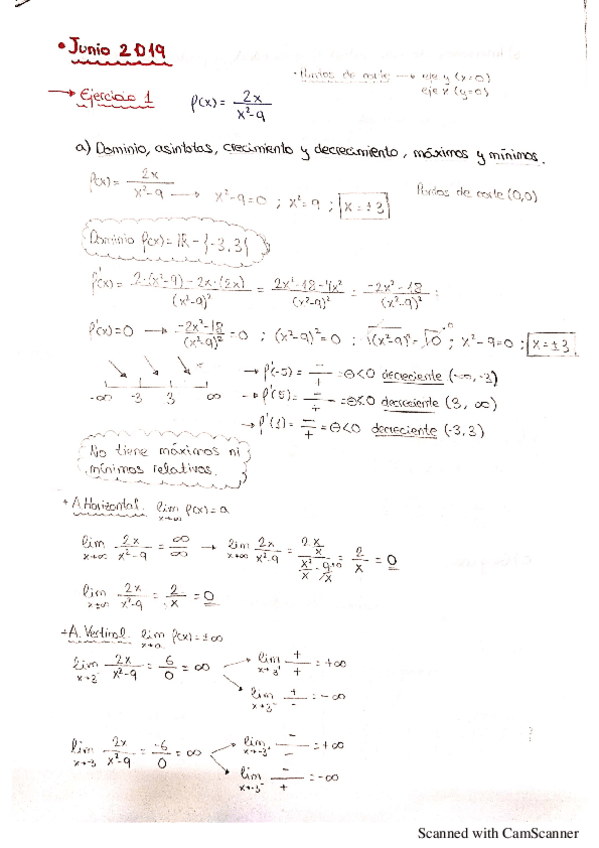 • Junio 2019
• Puntos de corte → eje y (x=0)
eje x (y=0)
→ Ejercicio 1 f(x) = 2x / x²-9
a) Dominio, asíntotas, crecimiento y decrecimiento, máximos y mínimos.
f(x) = 2x / x²-9 → x²-9=0 ; x²=9 ; x=±3
Puntos de corte (0,0)
Dominio f(x) = ℝ - {-3,3}
f'(x) = 2·(x²-9) - 2x·(2x) / (x²-9)² = 2x²-18-4x² / (x²-9)² = -2x²-18 / (x²-9)² ;
f'(x)=0 → -2x²-18 / (x²-9)² = 0 ; (x²-9)²=0 ; √(x²-9)² = √0 ; x²-9=0 ; x=±3
-∞ -3 3 ∞
→ f'(-5) = - / + = ⊖<0 decreciente (-∞,-3)
→ f'(5) = - / + = ⊖<0 decreciente (3, ∞)
→ f'(1) = - / + = ⊖<0 decreciente (-3,3)
No tiene máximos ni
mínimos relativos.
+ A.Horizontal. lim x→∞ f(x) = a
lim x→∞ 2x / x²-9 = ∞ / ∞ → lim x→∞ 2x / x²-9 = 2x/x / x²/x - 9/x = 2 / x = 0
lim x→∞ 2x / x²-9 = 2 / x = 0
+ A. Vertical. lim x→a f(x) = ±∞
lim x→3 2x / x²-9 = 6 / 0 = ∞
lim x→3⁺ + / + = +∞
lim x→3⁻ + / - = -∞
lim x→-3 2x / x²-9 = -6 / 0 = ∞
lim - / - = +∞
lim x→-3⁻ - / + = -∞
Scanned with CamScanner